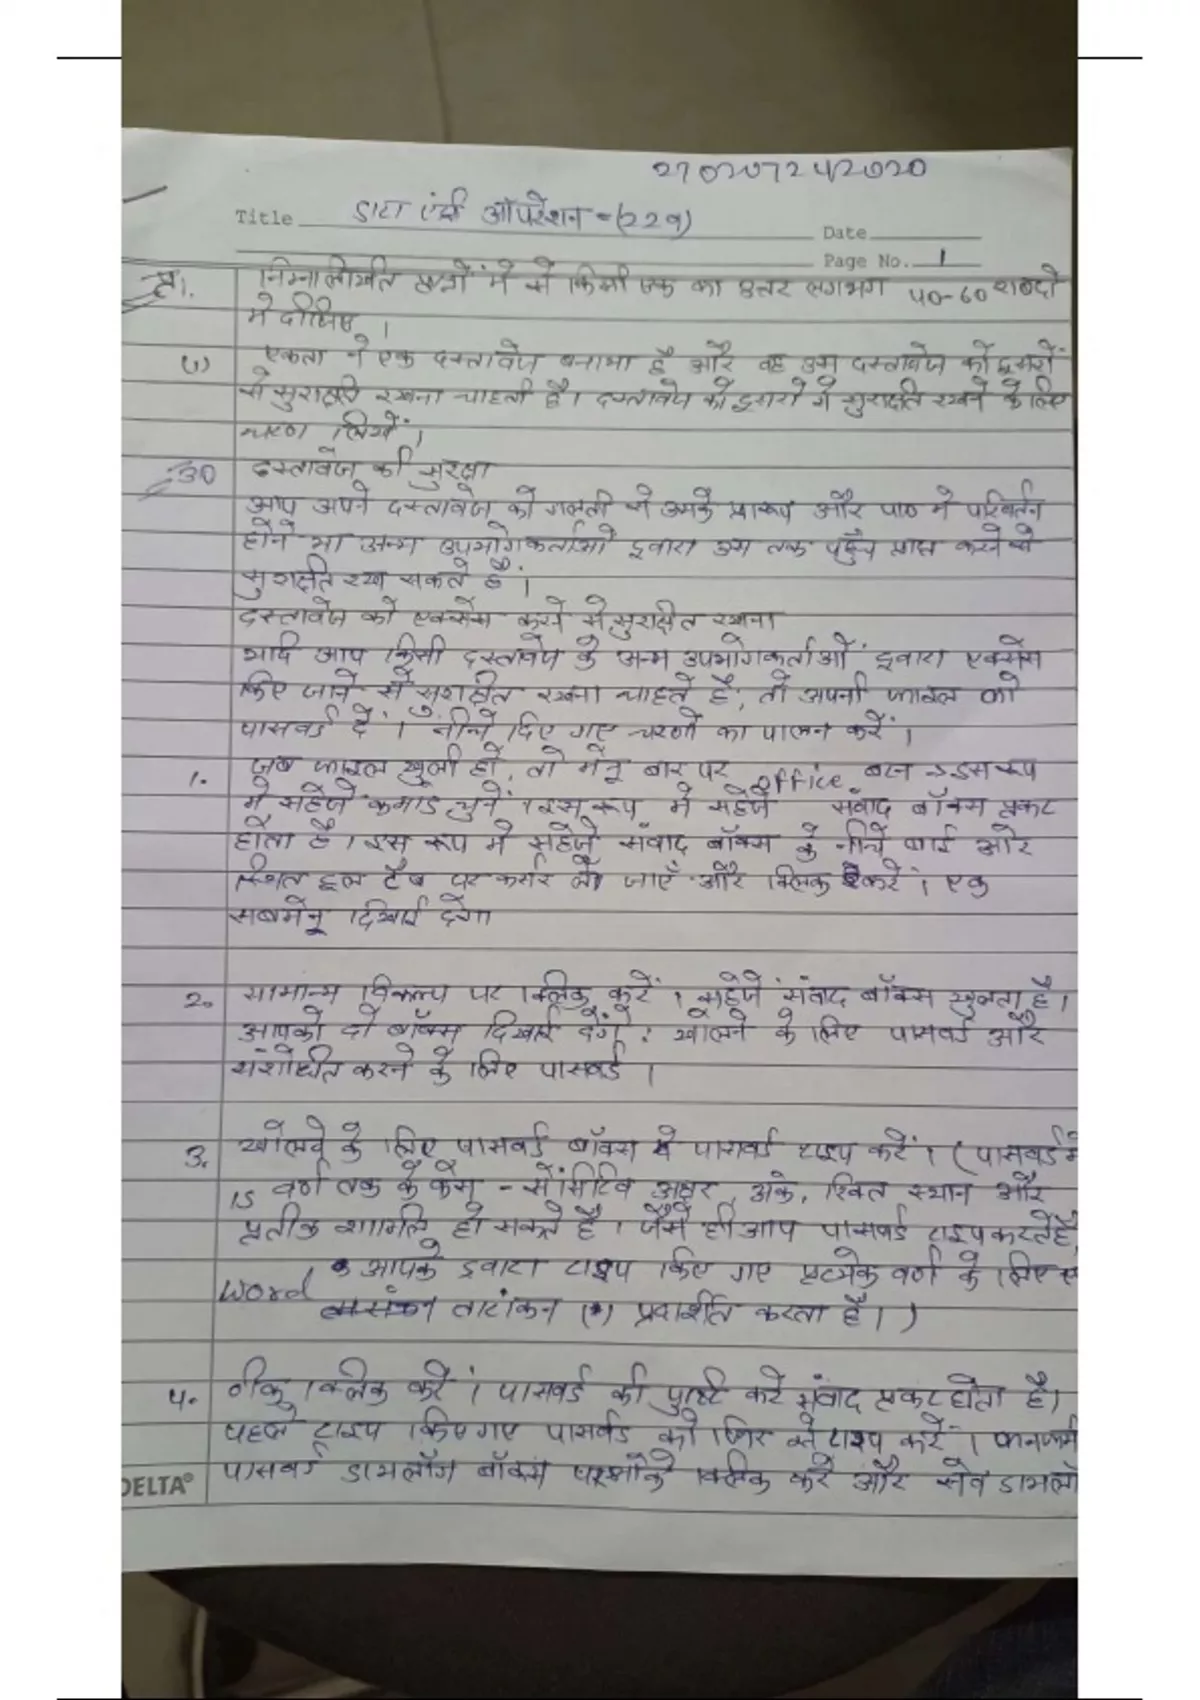 270207242020
Title डाटा एंट्री ऑपरेशन =(229)
Date
Page No. 1
प्र1. निम्नलिखित प्रश्नों में से किसी एक का उत्तर लगभग 40-60 शब्दों
में दीजिए ।
(1) एकता ने एक दस्तावेज बनाया है और वह उस दस्तावेज को दूसरों
से सुरक्षित रखना चाहती है। दस्तावेज को दूसरो से सुरक्षित रखने के लिए
चरण लिखें ।
उ0 दस्तावेज की सुरक्षा
आप अपने दस्तावेज को गलती से उसके प्रारूप और पाठ मे परिवर्तन
होने या अन्य उपयोगकर्ताओ द्वारा उस तक पहुँच प्राप्त करने से
सुरक्षित रख सकते हैं ।
दस्तावेज को एक्सेस करने से सुरक्षित रखना
यदि आप किसी दस्तावेज के अन्य उपयोगकर्ताओं द्वारा एक्सेस
किए जाने से सुरक्षित रखना चाहते है, तो अपनी फाइल को
पासवर्ड दें । नीचे दिए गए चरणो का पालन करें ।
1. जब फाइल खुली हो, तो मेनू बार पर office बटन → इस रूप
मे सहेजे कमाड चुनें । इस रूप मे सहेजे संवाद बॉक्स प्रकट
होता है । इस रूप मे सहेजे संवाद बॉक्स के नीचे बाई ओर
स्थित टूल टैब पर कर्सर ले जाएँ और क्लिक करें । एक
सबमेनू दिखाई देगा
2. सामान्य विकल्प पर क्लिक करें । सहेजे संवाद बॉक्स खुलता है ।
आपको दो बॉक्स दिखाई देंगे : खोलने के लिए पासवर्ड और
संशोधित करने के लिए पासवर्ड ।
3. खोलने के लिए पासवर्ड बॉक्स मे पासवर्ड टाइप करें । (पासवर्ड मे
15 वर्ण तक के केस - सेंसिटिव अक्षर, अंक, रिक्त स्थान और
प्रतीक शामिल हो सकते है । जैसे ही आप पासवर्ड टाइप करते है,
Word आपके द्वारा टाइप किए गए प्रत्येक वर्ण के लिए ए
तारांकन (*) प्रदर्शित करता है । )
4. ठीक क्लिक करें । पासवर्ड की पुष्टि करे संवाद प्रकट होता है।
पहले टाइप किए गए पासवर्ड को फिर से टाइप करें । कनफर्म
पासवर्ड डायलॉग बॉक्स पर ओके क्लिक करे और सेव डायलॉ
DELTA®